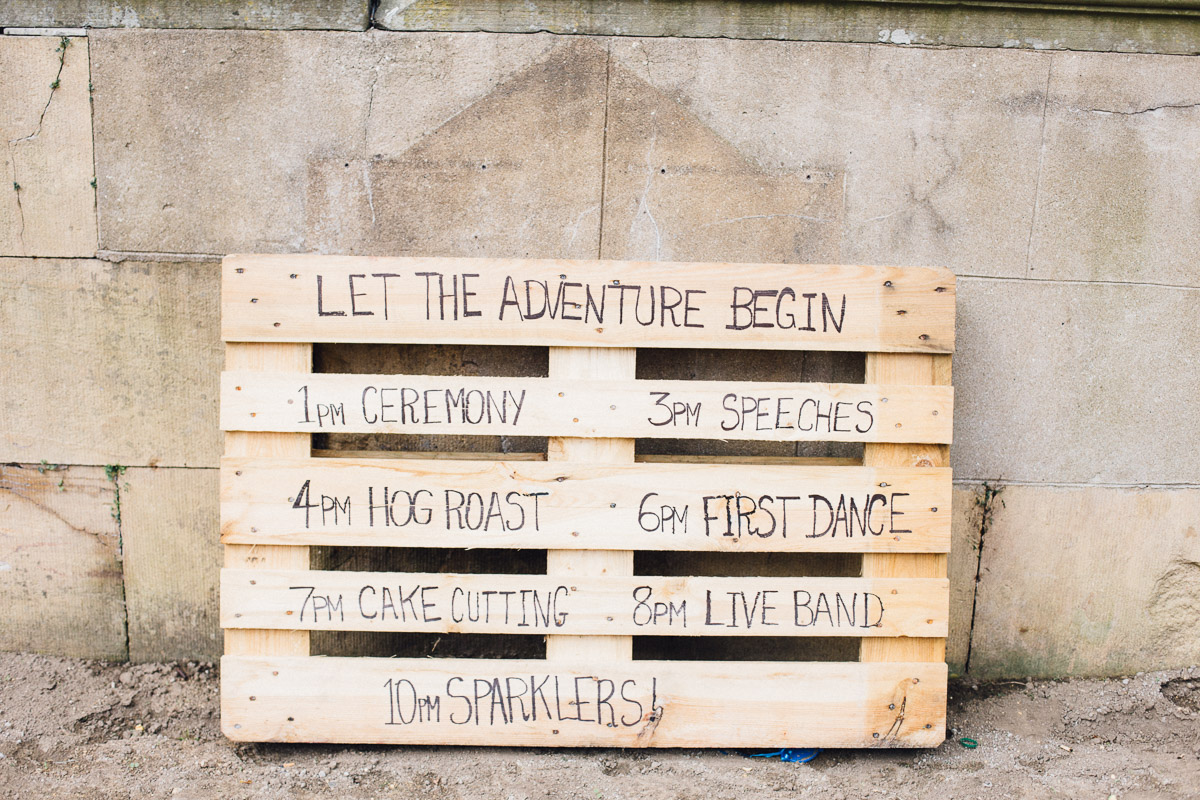 LET THE ADVENTURE BEGIN
1PM CEREMONY 3PM SPEECHES
4PM HOG ROAST 6PM FIRST DANCE
7PM CAKE CUTTING 8PM LIVE BAND
10PM SPARKLERS!